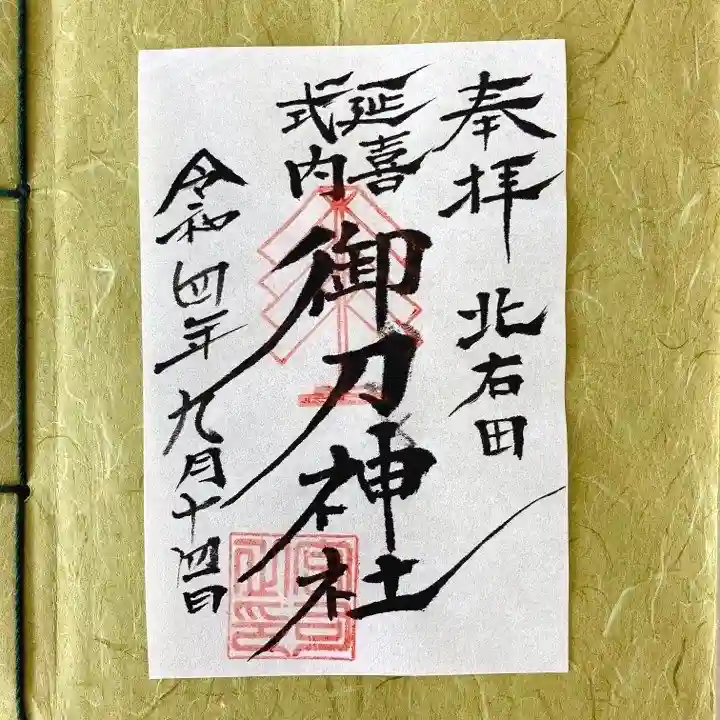 奉拝 北右田
延喜
式内
御刀神社
令和四年九月十四日